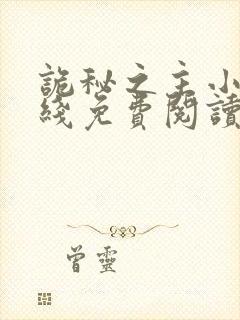 詭秘之主小
綫免費閱讀
曾靈